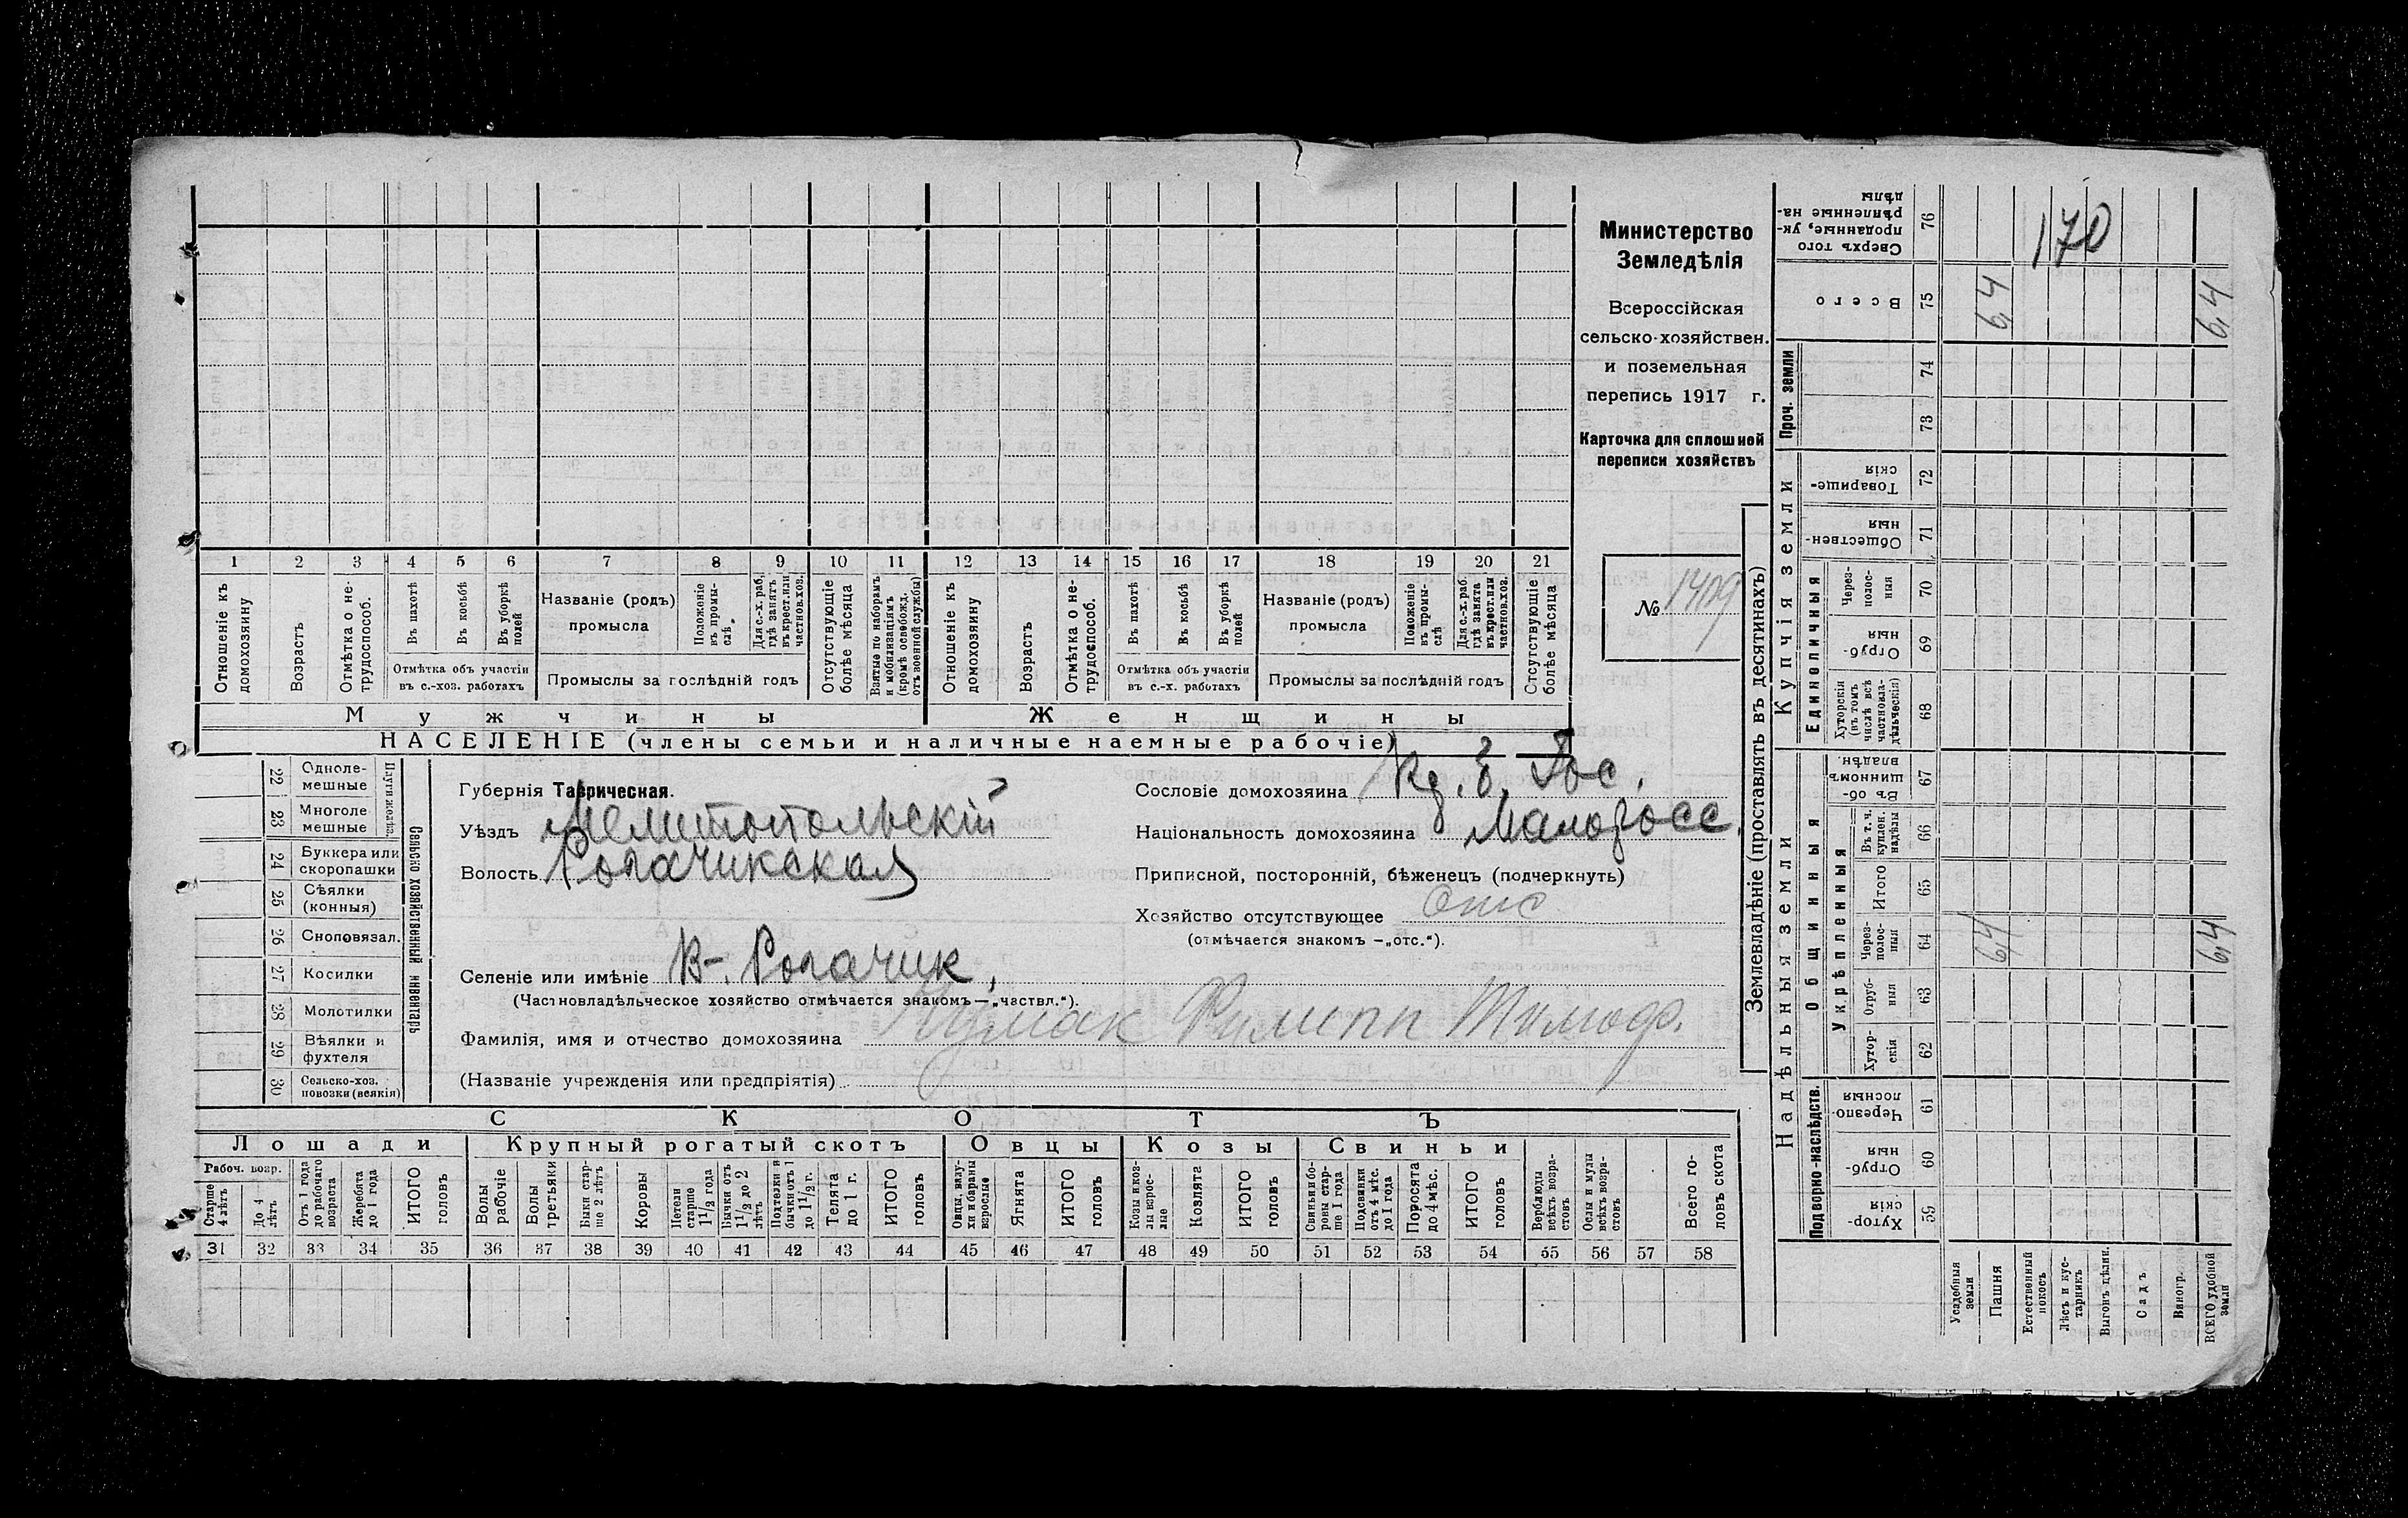 Министерство
Земледѣлія
Всероссійская
сельско-хозяйствен.
и поземельная
перепись 1917 г.
Карточка для сплошной
переписи хозяйствъ
№ 1409
1 2 3 4 5 6 7 8 9 10 11 12 13 14 15 16 17 18 19 20 21
Отношеніе къ домохозяину
Возрастъ
Отмѣтка о не-трудоспособ.
Въ пахотѣ
Въ косьбѣ
Въ уборкѣ полей
Отмѣтка объ участіи
въ с.-хоз. работахъ
Названіе (родъ)
промысла
Положеніе въ промы-слѣ
Для с.-х. раб. гдѣ занятъ въ крест. или частнов. хоз.
Промыслы за послѣдній годъ
Отсутствующіе болѣе мѣсяца
Взятые по наборамъ и мобилизаціямъ (кромѣ освобожд. отъ военной службы)
Отношеніе къ домохозяину
Возрастъ
Отмѣтка о не-трудоспособ.
Въ пахотѣ
Въ косьбѣ
Въ уборкѣ полей
Отмѣтка объ участіи
въ с.-х. работахъ
Названіе (родъ)
промысла
Положеніе въ промы-слѣ
Для с.-х. раб. гдѣ занята въ крест. или частнов. хоз.
Промыслы за послѣдній годъ
Отсутствующіе болѣе мѣсяца
Мужчины Женщины
НАСЕЛЕНІЕ (члены семьи и наличные наемные рабочіе)
22 Одноле-мешные
23 Многоле мешные
Плуги желѣз.
24 Буккера или скоропашки
25 Сѣялки (конныя)
26 Сноповязал.
27 Косилки
28 Молотилки
29 Вѣялки и фухтеля
30 Сельско-хоз. повозки (всякія)
Сельско хозяйственный инвентарь
Губернія Таврическая.
Уѣздъ Мелитопольскій
Волость Рогачикская
Селеніе или имѣніе В-. Рогачик,
(Частновладѣльческое хозяйство отмѣчается знакомъ—„частвл.“).
Фамилія, имя и отчество домохозяина Чумак Филипп Тимоф.
(Названіе учрежденія или предпріятія)
Сословіе домохозяина
Національность домохозяина Малоросс.
Приписной, посторонній, бѣженецъ (подчеркнуть)
Хозяйство отсутствующее Отс
(отмѣчается знакомъ —„отс.“).
СКОТЪ
Лошади Крупный рогатый скотъ Овцы Козы Свиньи
Рабоч. возр.
Старше 4 лѣтъ
До 4 лѣтъ
Отъ 1 года до рабочаго возраста
Жеребята до 1 года
ИТОГО головъ
Волы рабочіе
Волы третьяки
Быки стар-ше 2 лѣтъ
Коровы
Нетели старше 1 1/2 года
Бычки отъ 1 1/2 до 2 лѣтъ
Подтелки и бычки отъ 1 до 1 1/2 г.
Телята до 1 г.
ИТОГО головъ
Овцы, валу-хи и бараны взрослые
Ягнята
ИТОГО головъ
Козы и коз-лы взрос-лые
Козлята
ИТОГО головъ
Свиньи и бо-ровы стар-ше 1 года
Подсвинки отъ 4 мѣс. до 1 года
Поросята до 4 мѣс.
ИТОГО головъ
Верблюды всѣхъ возра-стовъ
Ослы и мулы всѣхъ возра-стовъ
Всего го-ловъ скота
31 32 33 34 35 36 37 38 39 40 41 42 43 44 45 46 47 48 49 50 51 52 53 54 55 56 57 58
Землевладѣніе (проставлять въ десятинахъ)
Надѣльныя земли
Купчія земли
Проч. земли
Подворно-наслѣдств.
Общинныя
Укрѣпленныя
Единоличныя
Хутор-скія 59
Отруб-ныя 60
Черезпо-лосныя 61
Хутор-скія 62
Отруб-ныя 63
Через-полос-ныя 64 6,4 6,4
Итого 65
Въ т. ч. куплен. надѣлы 66
Въ об-щинномъ владѣн. 67
Хуторскія (въ томъ числѣ всѣ частновла-дѣльческія) 68
Отруб-ныя 69
Через-полос-ныя 70
Обществен-ныя 71
Товарище-скія 72
73
74
Всего 75 6,4 6,4
Сверхъ того проданные, ук-рѣпленные на-дѣлы 76
170
Усадебныя земли
Пашня
Естественный покосъ
Лѣсъ и кус-тарникъ
Выгонъ цѣлин.
Садъ
Виногр.
ВСЕГО удобной земли